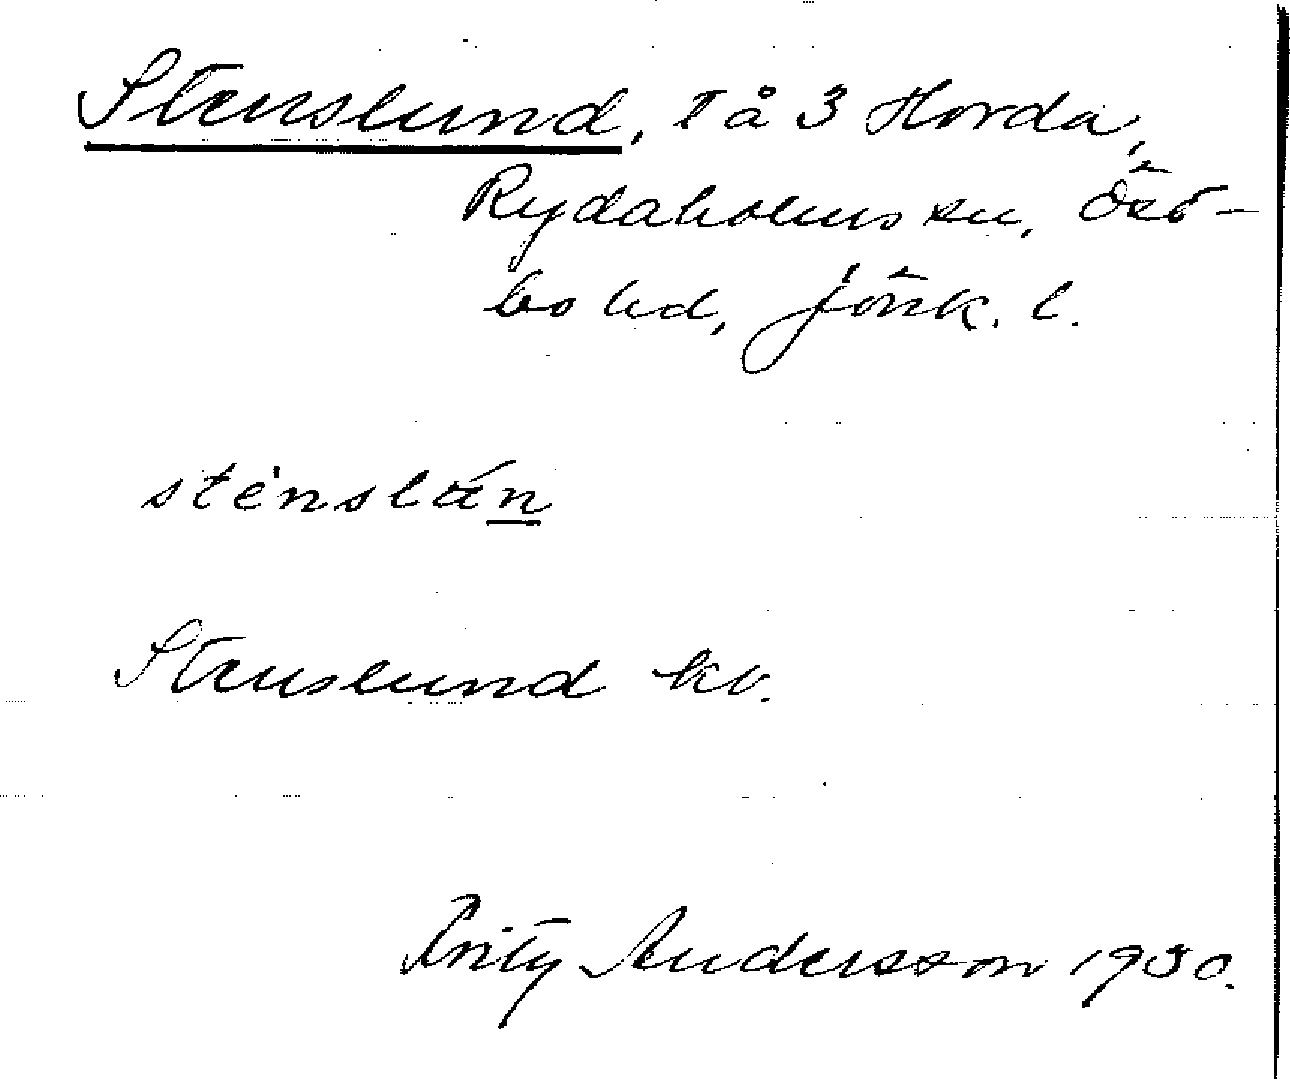 Stenslund, T å 3 Horda,
Rydaholms sn, Öst-
bo hd, Jönk. l.
sténslán
Stenslund kv.
Fritz Andersson 1930.